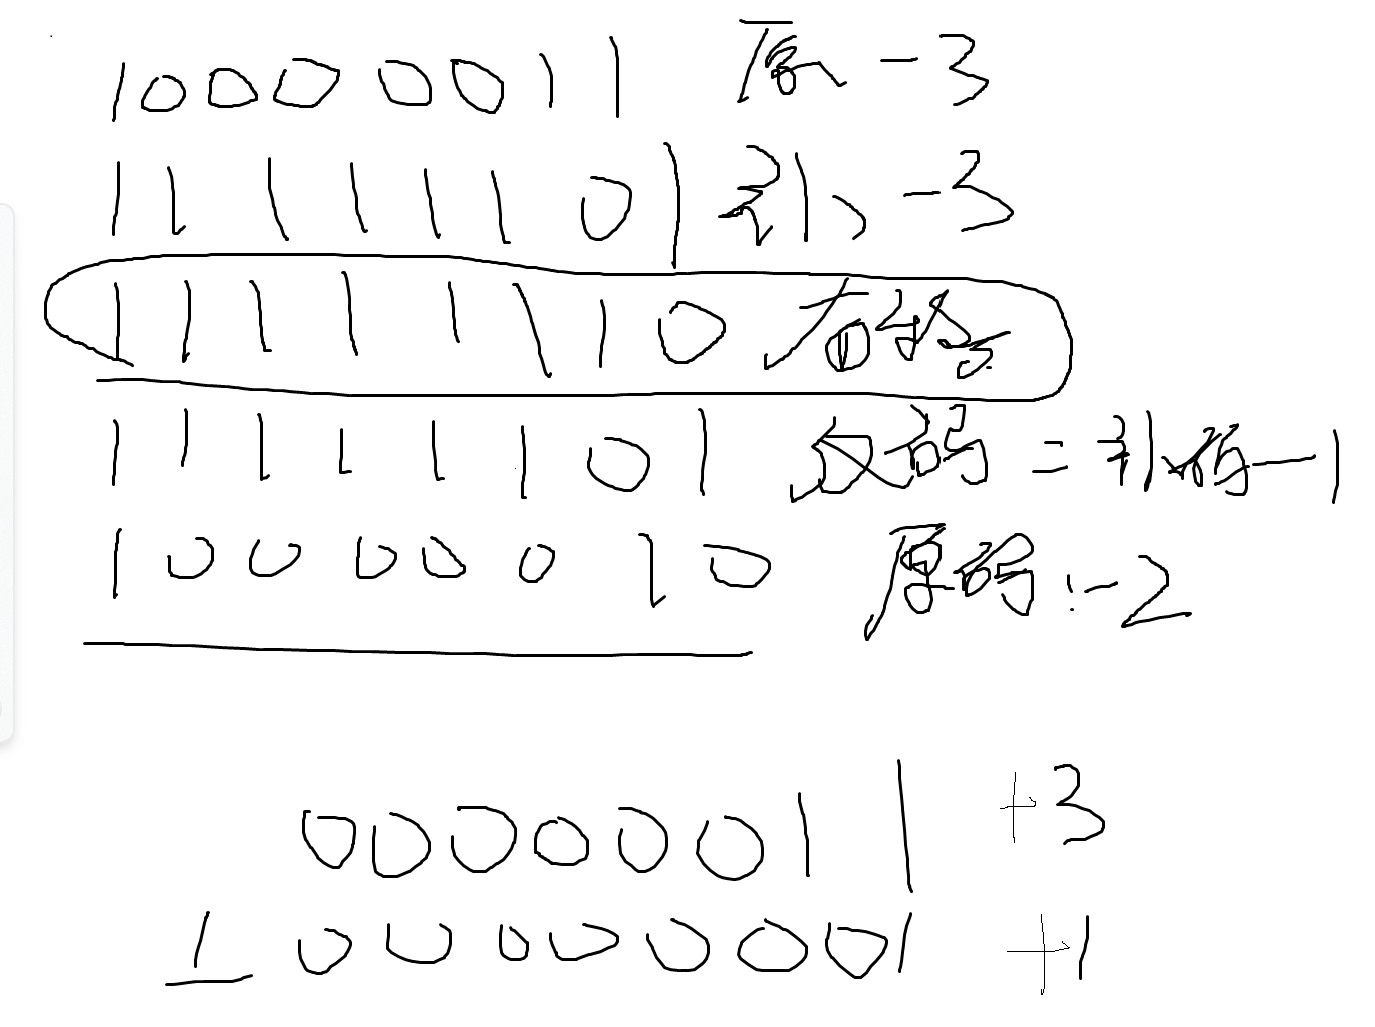 10000011 原 -3
11111101 补 -3
11111110 右移
11111101 反码 = 补码-1
10000010 原码:-2
00000011 +3
1 00000001 +1